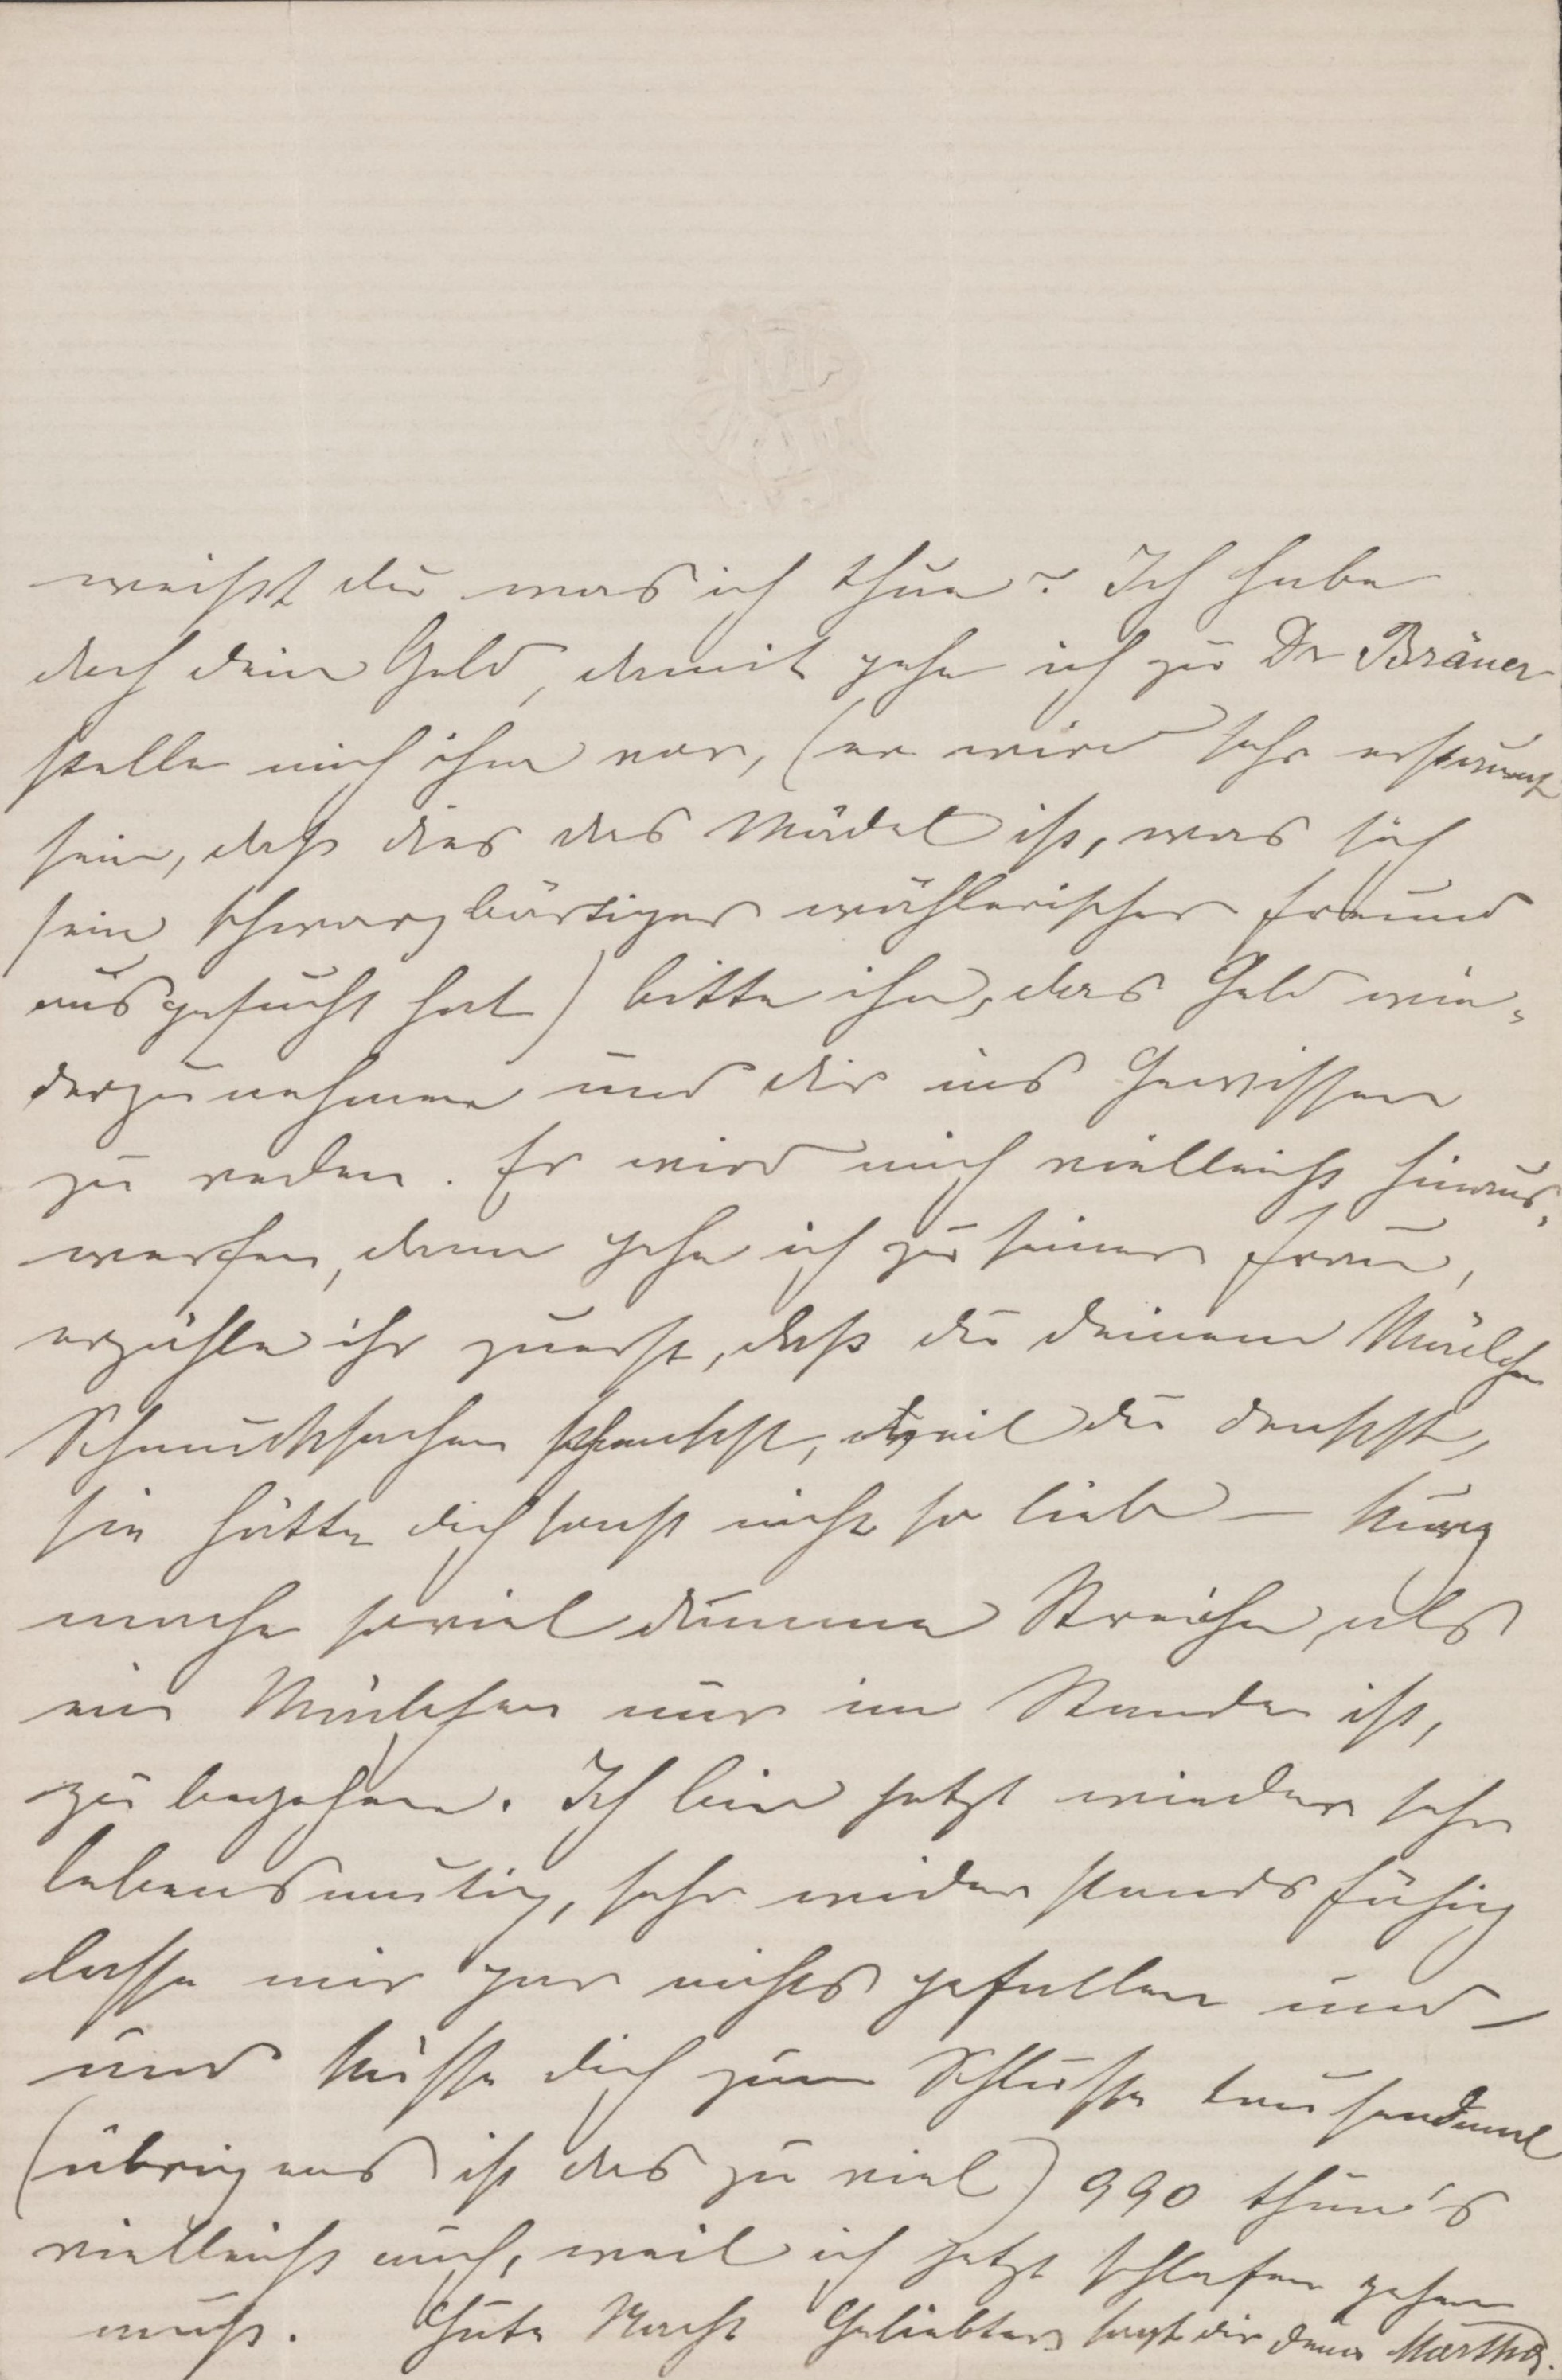 weißt du was ich thue? Ich habe
doch dein Geld, damit gehe ich zu Dr Bräuer
stelle mich ihm vor, (er wird sehr erstaunt
sein, daß dies das Mädel ist, was sich
sein schwarzbärtiger wählerischer Freund
ausgesucht hat) bitte ihn, das Geld wie-
derzunehmen und dir ins Gewissen
zu reden. Er wird mich vielleicht hinaus-
werfen, dann gehe ich zu seiner Frau,
erzähle ihr zuerst, daß du deinem Mädchen
Schmucksachen schenkst, weil du denkst,
sie hätte dich sonst nicht so lieb – kurz
mache soviel dumme Streiche, als
ein Mädchen nur im Stande ist,
zu begehen. Ich bin jetzt wieder sehr
lebensmutig, sehr widerstandsfähig
lasse mir gar nichts gefallen und –
und küsse dich zum Schlusse tausendmal
(übrigens ist das zu viel) 990 thun's
vielleicht auch, weil ich jetzt schlafen gehen
muß. Gute Nacht Geliebter, sagt dir deine Martha.